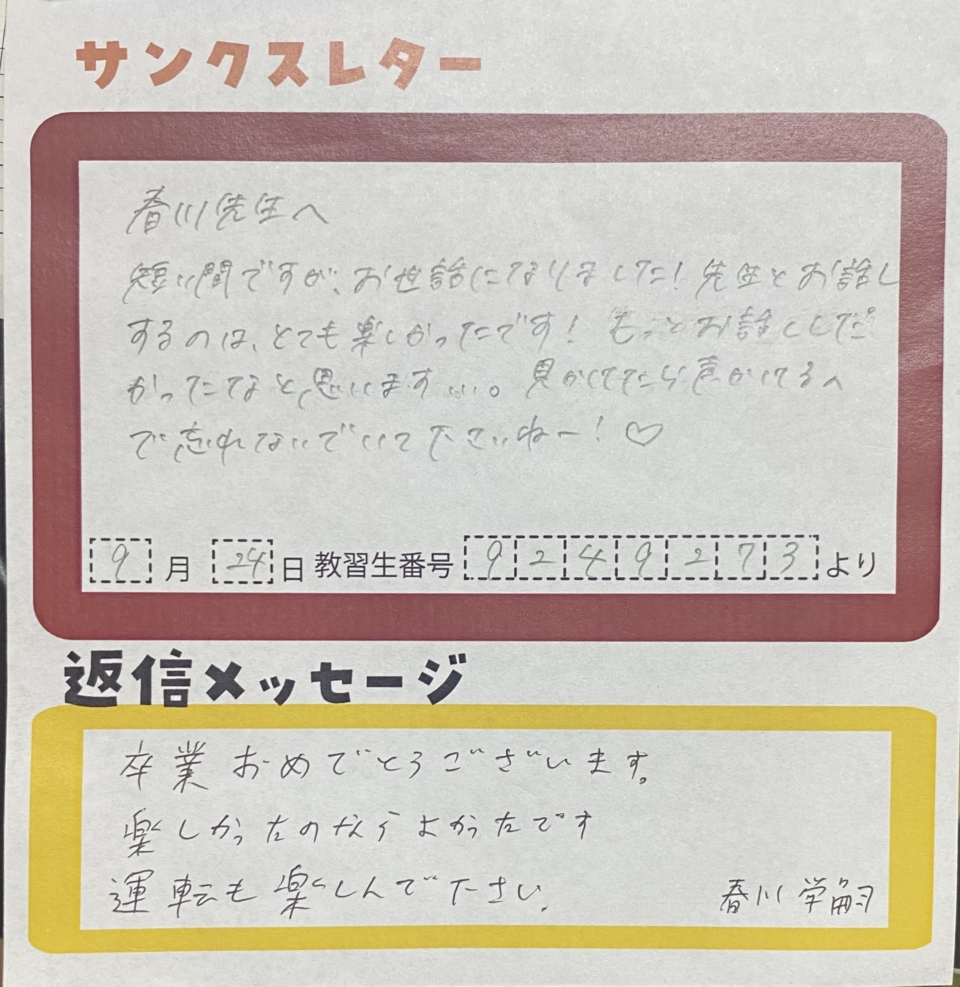 サンクスレター
春川先生へ
短い間ですが、お世話になりました！先生とお話し
するのは、とても楽しかったです！もっとお話しした
かったなと思います...。見かけたら声かけるん
で忘れないでいて下さいねー！♡
9月24日 教習生番号 9249273より
返信メッセージ
卒業おめでとうございます。
楽しかったのならよかったです
運転も楽しんで下さい。 春川 学嗣